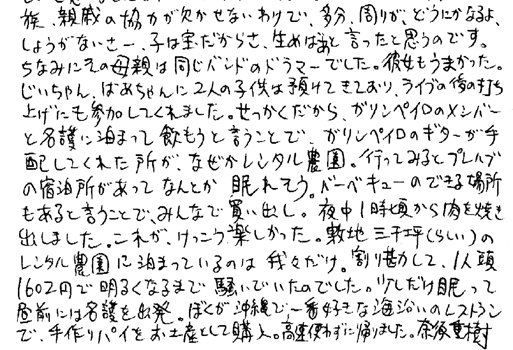 族、親戚の協力が欠かせないわけで、多分、周りが、どうにかなるよ、
しょうがないさー、子は宝だからさ、生めばぁと言ったと思うのです。
ちなみにその母親は同じバンドのドラマーでした。彼女もうまかった。
じいちゃん、ばあちゃんに2人の子供は預けてきており、ライブの後の打ち
上げにも参加してくれました。せっかくだから、ガリンペイロのメンバー
と名護に泊まって飲もうと言うことで、ガリンペイロのギターが手
配してくれた所が、なぜかレンタル農園。行ってみるとプレハブ
の宿泊所があってなんとか眠れそう。バーベキューのできる場所
もあると言うことで、みんなで買い出し。夜中1時頃から肉を焼き
出しました。これが、けっこう楽しかった。敷地三千坪(らしい)の
レンタル農園に泊まっているのは我々だけ。割り勘かして、1人頭
1602円で明るくなるまで騒いでいたのでした。少しだけ眠って
昼前には名護を出発。ぼくが沖縄で一番好きな海沿いのレストラン
で、手作りパイをお土産として購入。高速使わずに帰りました。奈良重樹